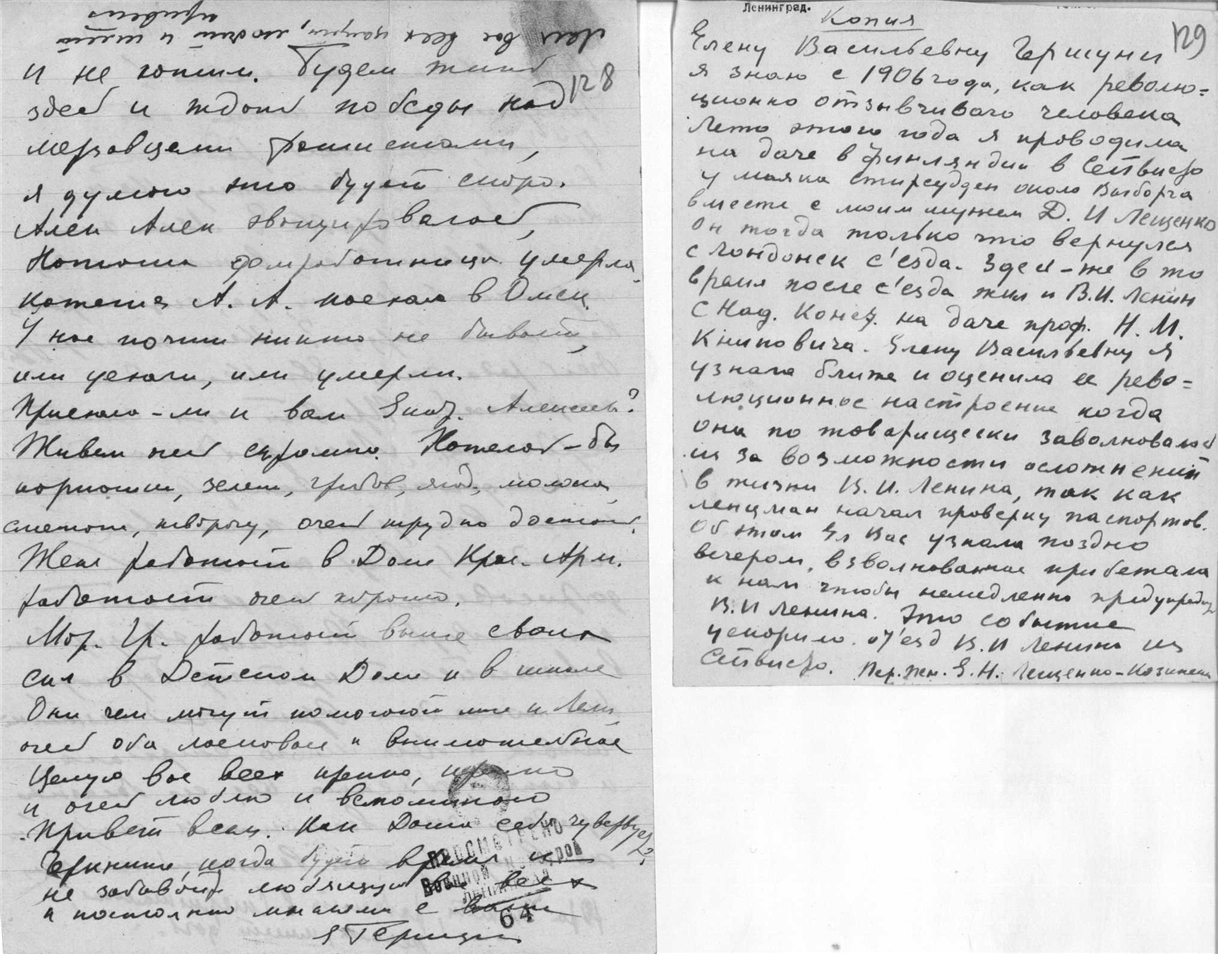 Лел вас всех целует, любит и шлет
привет
128
и не хотим. Будем жить
здесь и ждать победы над
мерзавцами фашистами,
я думаю это будет скоро.
Алек Алек эвакуировалась,
Наташа домработница умерла,
А. А. поехала в Омск.
У нас почти никто не бывает,
или уехали, или умерли.
Приехала-ли к вам Алексеев?
Живем мы скромно. Хотелось-бы
картошки, зелени, грибов, ягод, молока,
сметаны, творогу, очень трудно достать.
Женя работает в Доме Крас. Арм.
работает очень хорошо.
Мар. Гр. работает выше своих
сил в Детском Доме и в школе
Они чем могут помогают мне и Леле,
очень оба ласковые и внимательные
Целую вас всех крепко, крепко
и очень люблю и вспоминаю
Привет всем. Как Даша себя чувствует?
когда будет время
не забывайте любящую вас всех
и постоянно мыслями с вами
Е Гершуни
ПРОСМОТРЕНО
Военной Цензурой
64
Ленинград.
Копия
129
Елену Васильевну Гершуни
я знаю с 1906 года, как револю=
ционно отзывчивого человека
Лето этого года я проводила
на даче в Финляндии в Сейвисто
у маяка Стирсудден около Выборга
вместе с моим мужем Д. И Лещенко
он тогда только что вернулся
с Лондонск с'езда. Здесь-же в то
время после с'езда жил и В.И. Ленин
с Над. Конст. на даче проф. Н. М.
Книповича. Елену Васильевну я
узнала ближе и оценила ее рево=
люционное настроение когда
она по товарищески заволновалась
из за возможности осложнений
в жизни В. И. Ленина, так как
ленсман начал проверку паспортов.
Об этом Ел Вас узнала поздно
вечером, взволнованная прибежала
к нам чтобы немедленно предупредить
В.И Ленина. Это событие
ускорило от'езд В.И Ленина из
Сейвисто. Пер. пен. Е. Н. Лещенко-Казинец